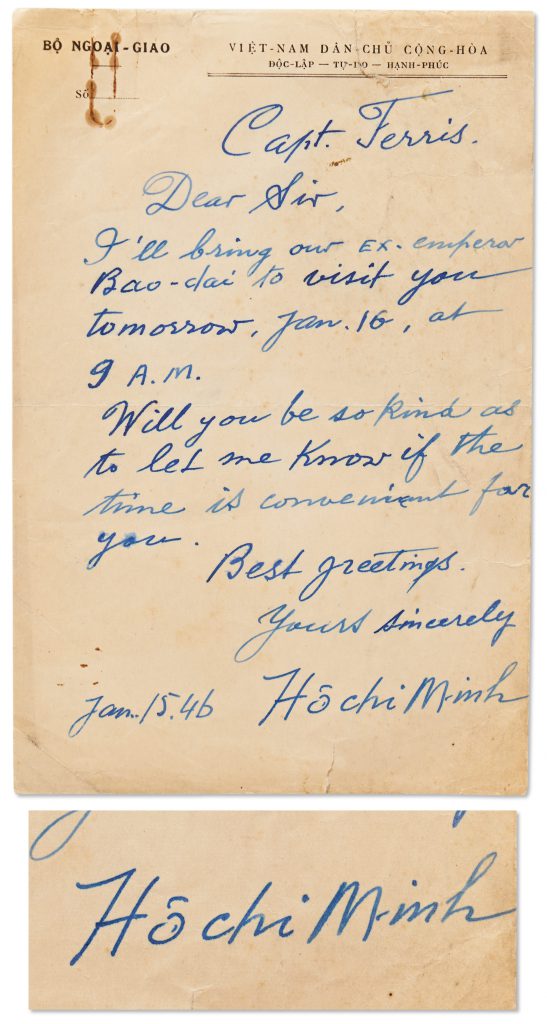 BỘ NGOẠI-GIAO
VIỆT-NAM DÂN-CHỦ CỘNG-HÒA
ĐỘC-LẬP — TỰ-DO — HẠNH-PHÚC
Số
Capt. Ferris.
Dear Sir,
I'll bring our EX-emperor
Bao-dai to visit you
tomorrow, Jan. 16, at
9 A.M.
Will you be so kind as
to let me know if the
time is convenient for
you.
Best greetings.
Yours sincerely
Jan. 15. 46
Hồ chi Minh
Hồ chi Minh